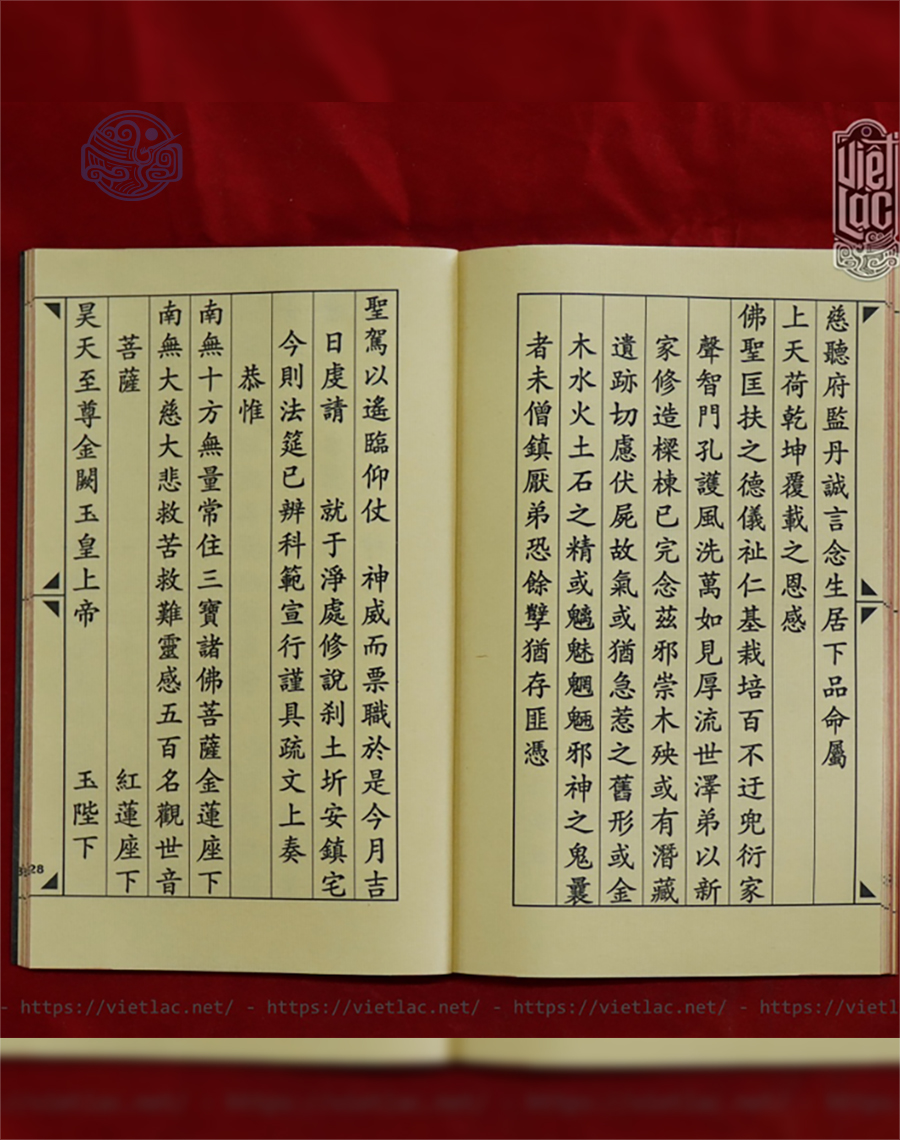 慈聽府監丹誠言念生居下品命屬
上天荷乾坤覆載之恩感
佛聖匡扶之德儀祉仁基栽培百不迂兜衍家
聲智門孔護風洗萬如見厚流世澤弟以新
家修造樑棟已完念茲邪崇木殃或有潛藏
遺跡切慮伏屍故氣或猶急惹之舊形或金
木水火土石之精或魑魅魍魎邪神之鬼曩
者未僧鎮厭弟恐餘孽猶存匪憑
聖駕以遙臨仰仗 神威而票職於是今月吉
日虔請 就于淨處修說刹土圻安鎮宅
今則法筵已辨科範宣行謹具疏文上奏
恭惟
南無十方無量常住三寶諸佛菩薩金蓮座下
南無大慈大悲救苦救難靈感五百名觀世音
菩薩 紅蓮座下
昊天至尊金闕玉皇上帝 玉陛下
28
Việt Lạc
- https://vietlac.net/ - https://vietlac.net/ - https://vietlac.net/ - https://vietl